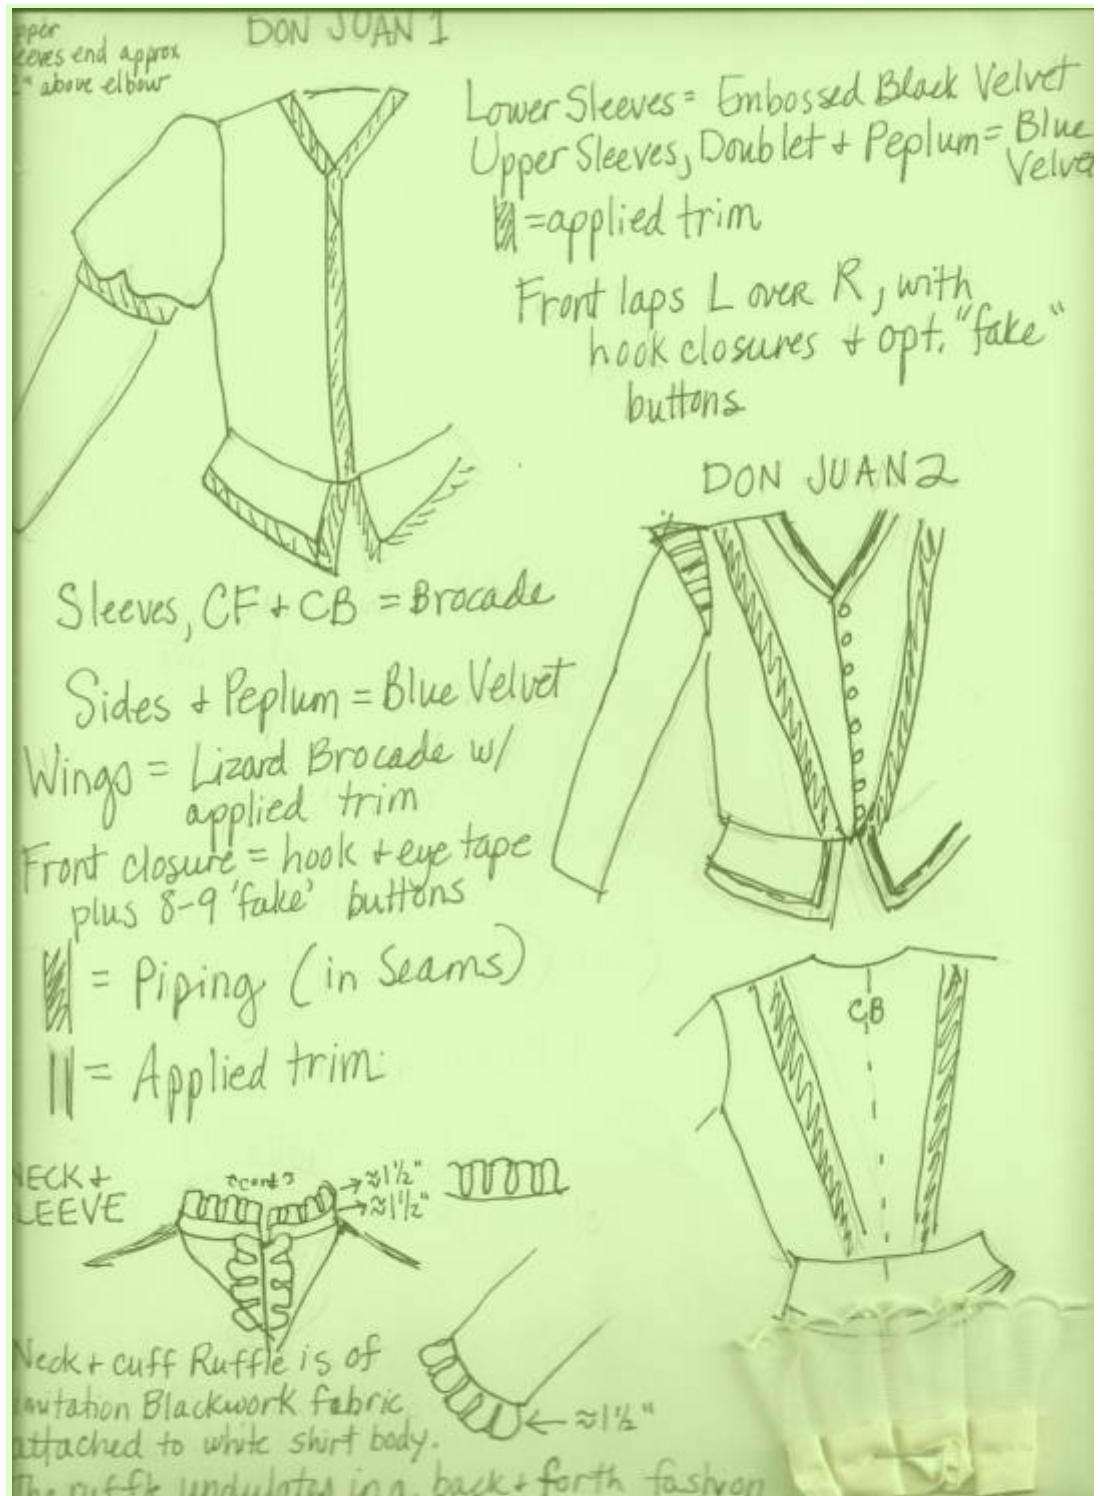 DON JUAN 1
pper
eeves end approx
2" above elbow
Lower Sleeves = Embossed Black Velvet
Upper Sleeves, Doublet + Peplum = Blue
Velvet
= applied trim
Front laps L over R, with
hook closures + opt. "fake"
buttons
DON JUAN 2
Sleeves, CF + CB = Brocade
Sides + Peplum = Blue Velvet
Wings = Lizard Brocade w/
applied trim
Front closure = hook + eye tape
plus 8-9 'fake' buttons
= Piping (in Seams)
= Applied trim
CB
NECK +
LEEVE
≈1½"
≈1½"
Neck + cuff Ruffle is of
imitation Blackwork fabric
attached to white shirt body.
≈1½"
The ruffle undulates in a back + forth fashion